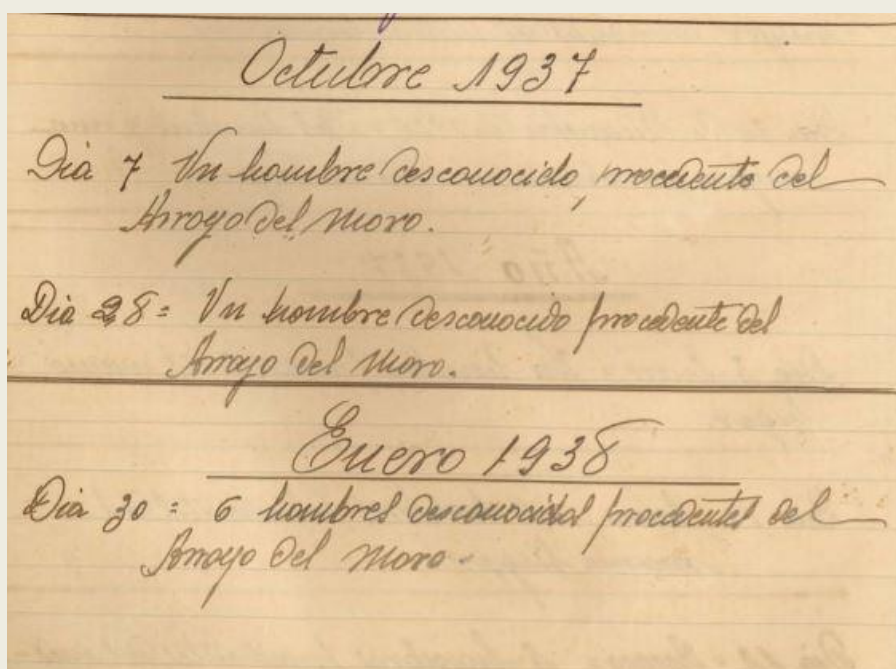 Octubre 1937
Dia 7 Un hombre desconocido, procedente del
Arroyo del Moro.
Dia 28 = Un hombre desconocido procedente del
Arroyo del Moro.
Enero 1938
Dia 30 = 6 hombres desconocidos procedentes del
Arroyo del Moro -